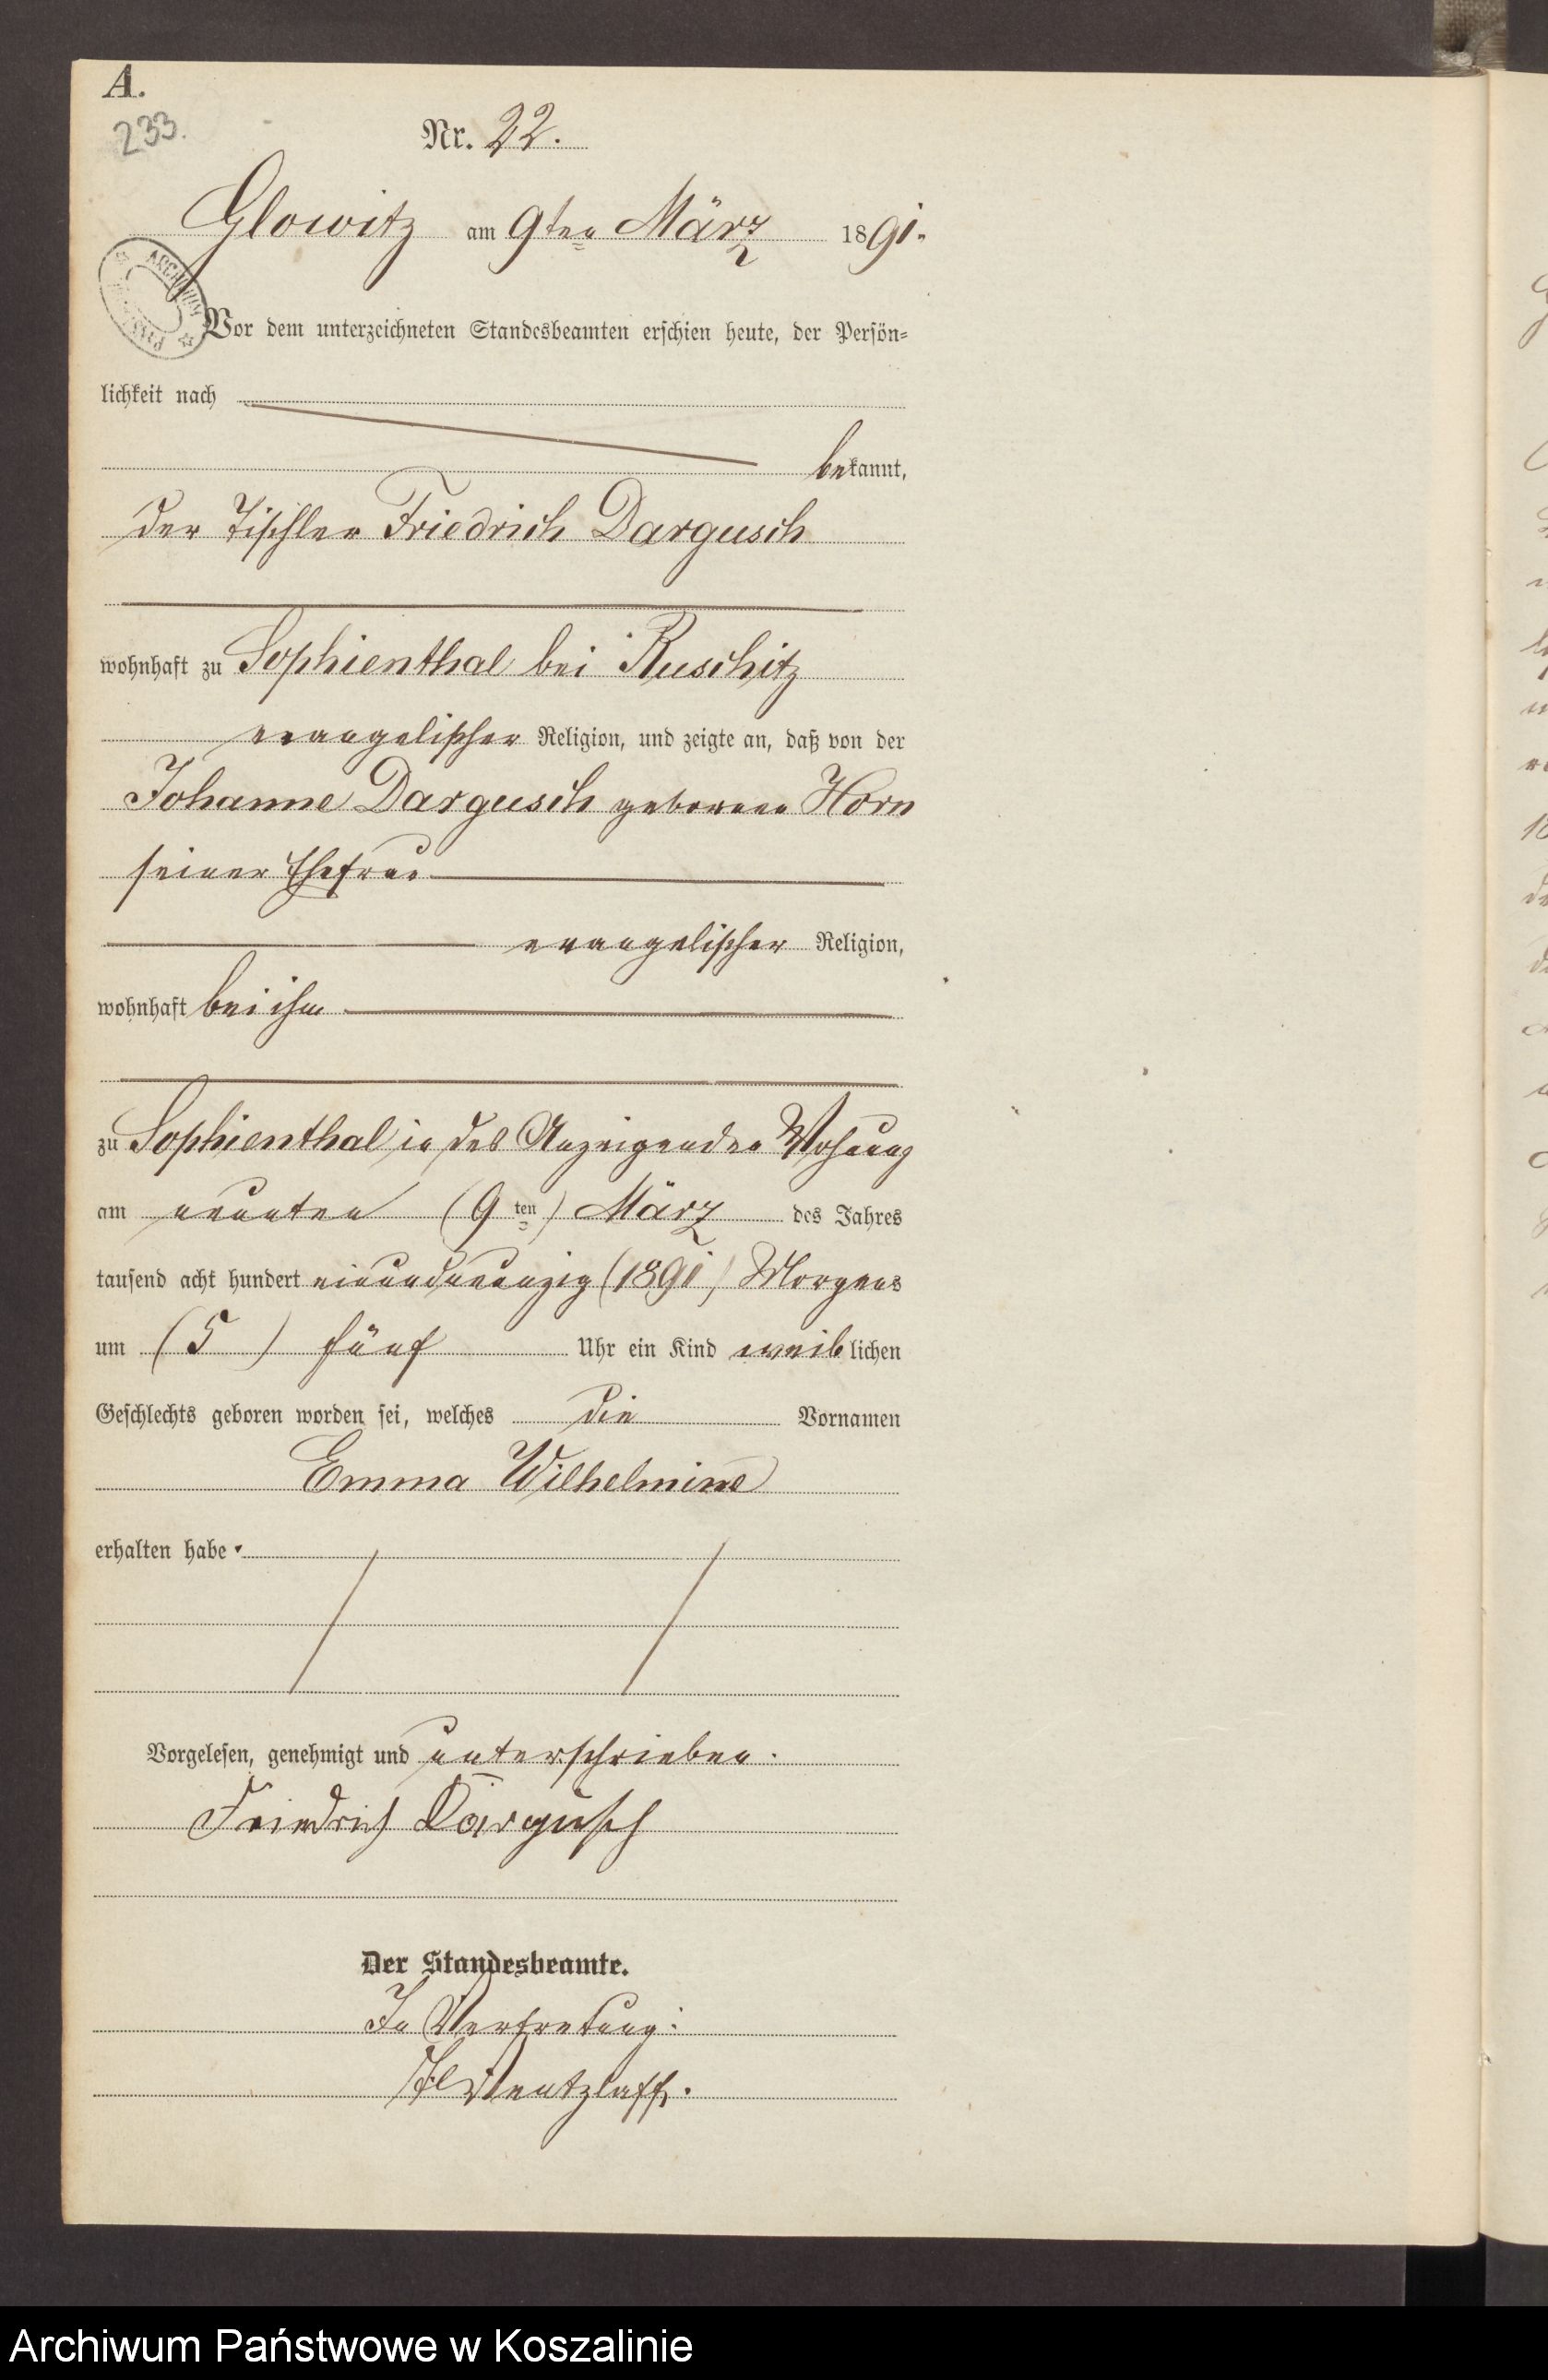 A.
233.
Nr. 22.
Glowitz am 9ten März 1891.
ARCHIWUM
Vor dem unterzeichneten Standesbeamten erschien heute, der Persön-
lichkeit nach
bekannt,
der Tischler Friedrich Dargusch
wohnhaft zu Sophienthal bei Ruschitz
evangelischer Religion, und zeigte an, daß von der
Johanne Dargusch geborenen Horn
seiner Ehefrau
evangelischer Religion,
wohnhaft bei ihm
zu Sophienthal in des Anzeigenden Wohnung
am neunten (9ten) März des Jahres
tausend acht hundert einundneunzig (1891) Morgens
um (5) fünf Uhr ein Kind weiblichen
Geschlechts geboren worden sei, welches die Vornamen
Emma Wilhelmine
erhalten habe.
Vorgelesen, genehmigt und unterschrieben.
Friedrich Dargusch
Der Standesbeamte.
In Vertretung:
Wentzlaff.
Archiwum Państwowe w Koszalinie